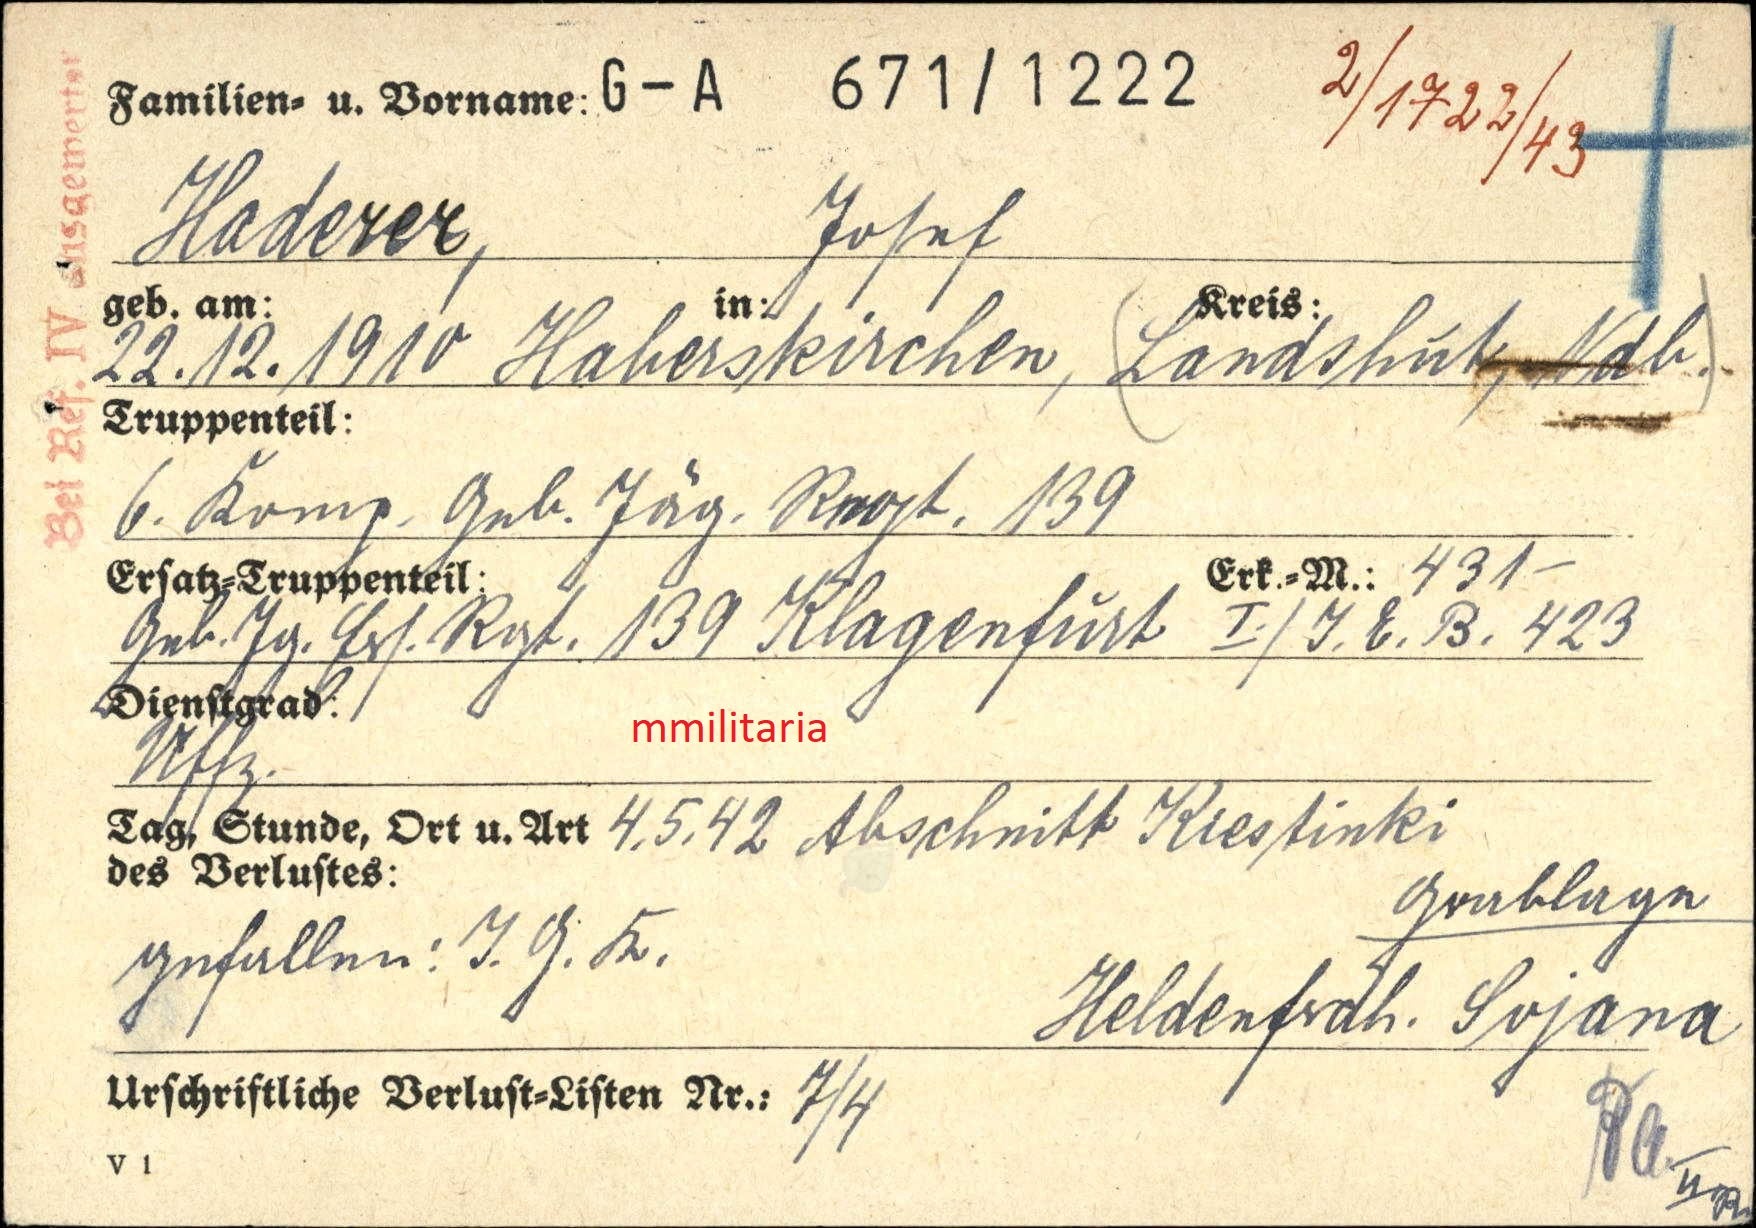 Familien- u. Vorname: G-A 671/1222 2/1722/43
Haderer, Josef
geb. am: in: Kreis:
22.12.1910 Haberskirchen, (Landshut, Ndb.)
Truppenteil:
6. Komp. Geb. Jäg. Regt. 139
Ersatz-Truppenteil: Erk.-M.: 431-
Geb. Jg. Ers. Rgt. 139 Klagenfurt I./J.E.B. 423
Dienstgrad:
Uffz.
Tag, Stunde, Ort u. Art 4.5.42 Abschnitt Kiestinki
des Verlustes:
Grablage
gefallen: I. G. K.
Heldenfrdh. Sojana
Urschriftliche Verlust-Listen Nr.: 7/4
V 1
Bei Ref. IV ausgewertet
mmilitaria